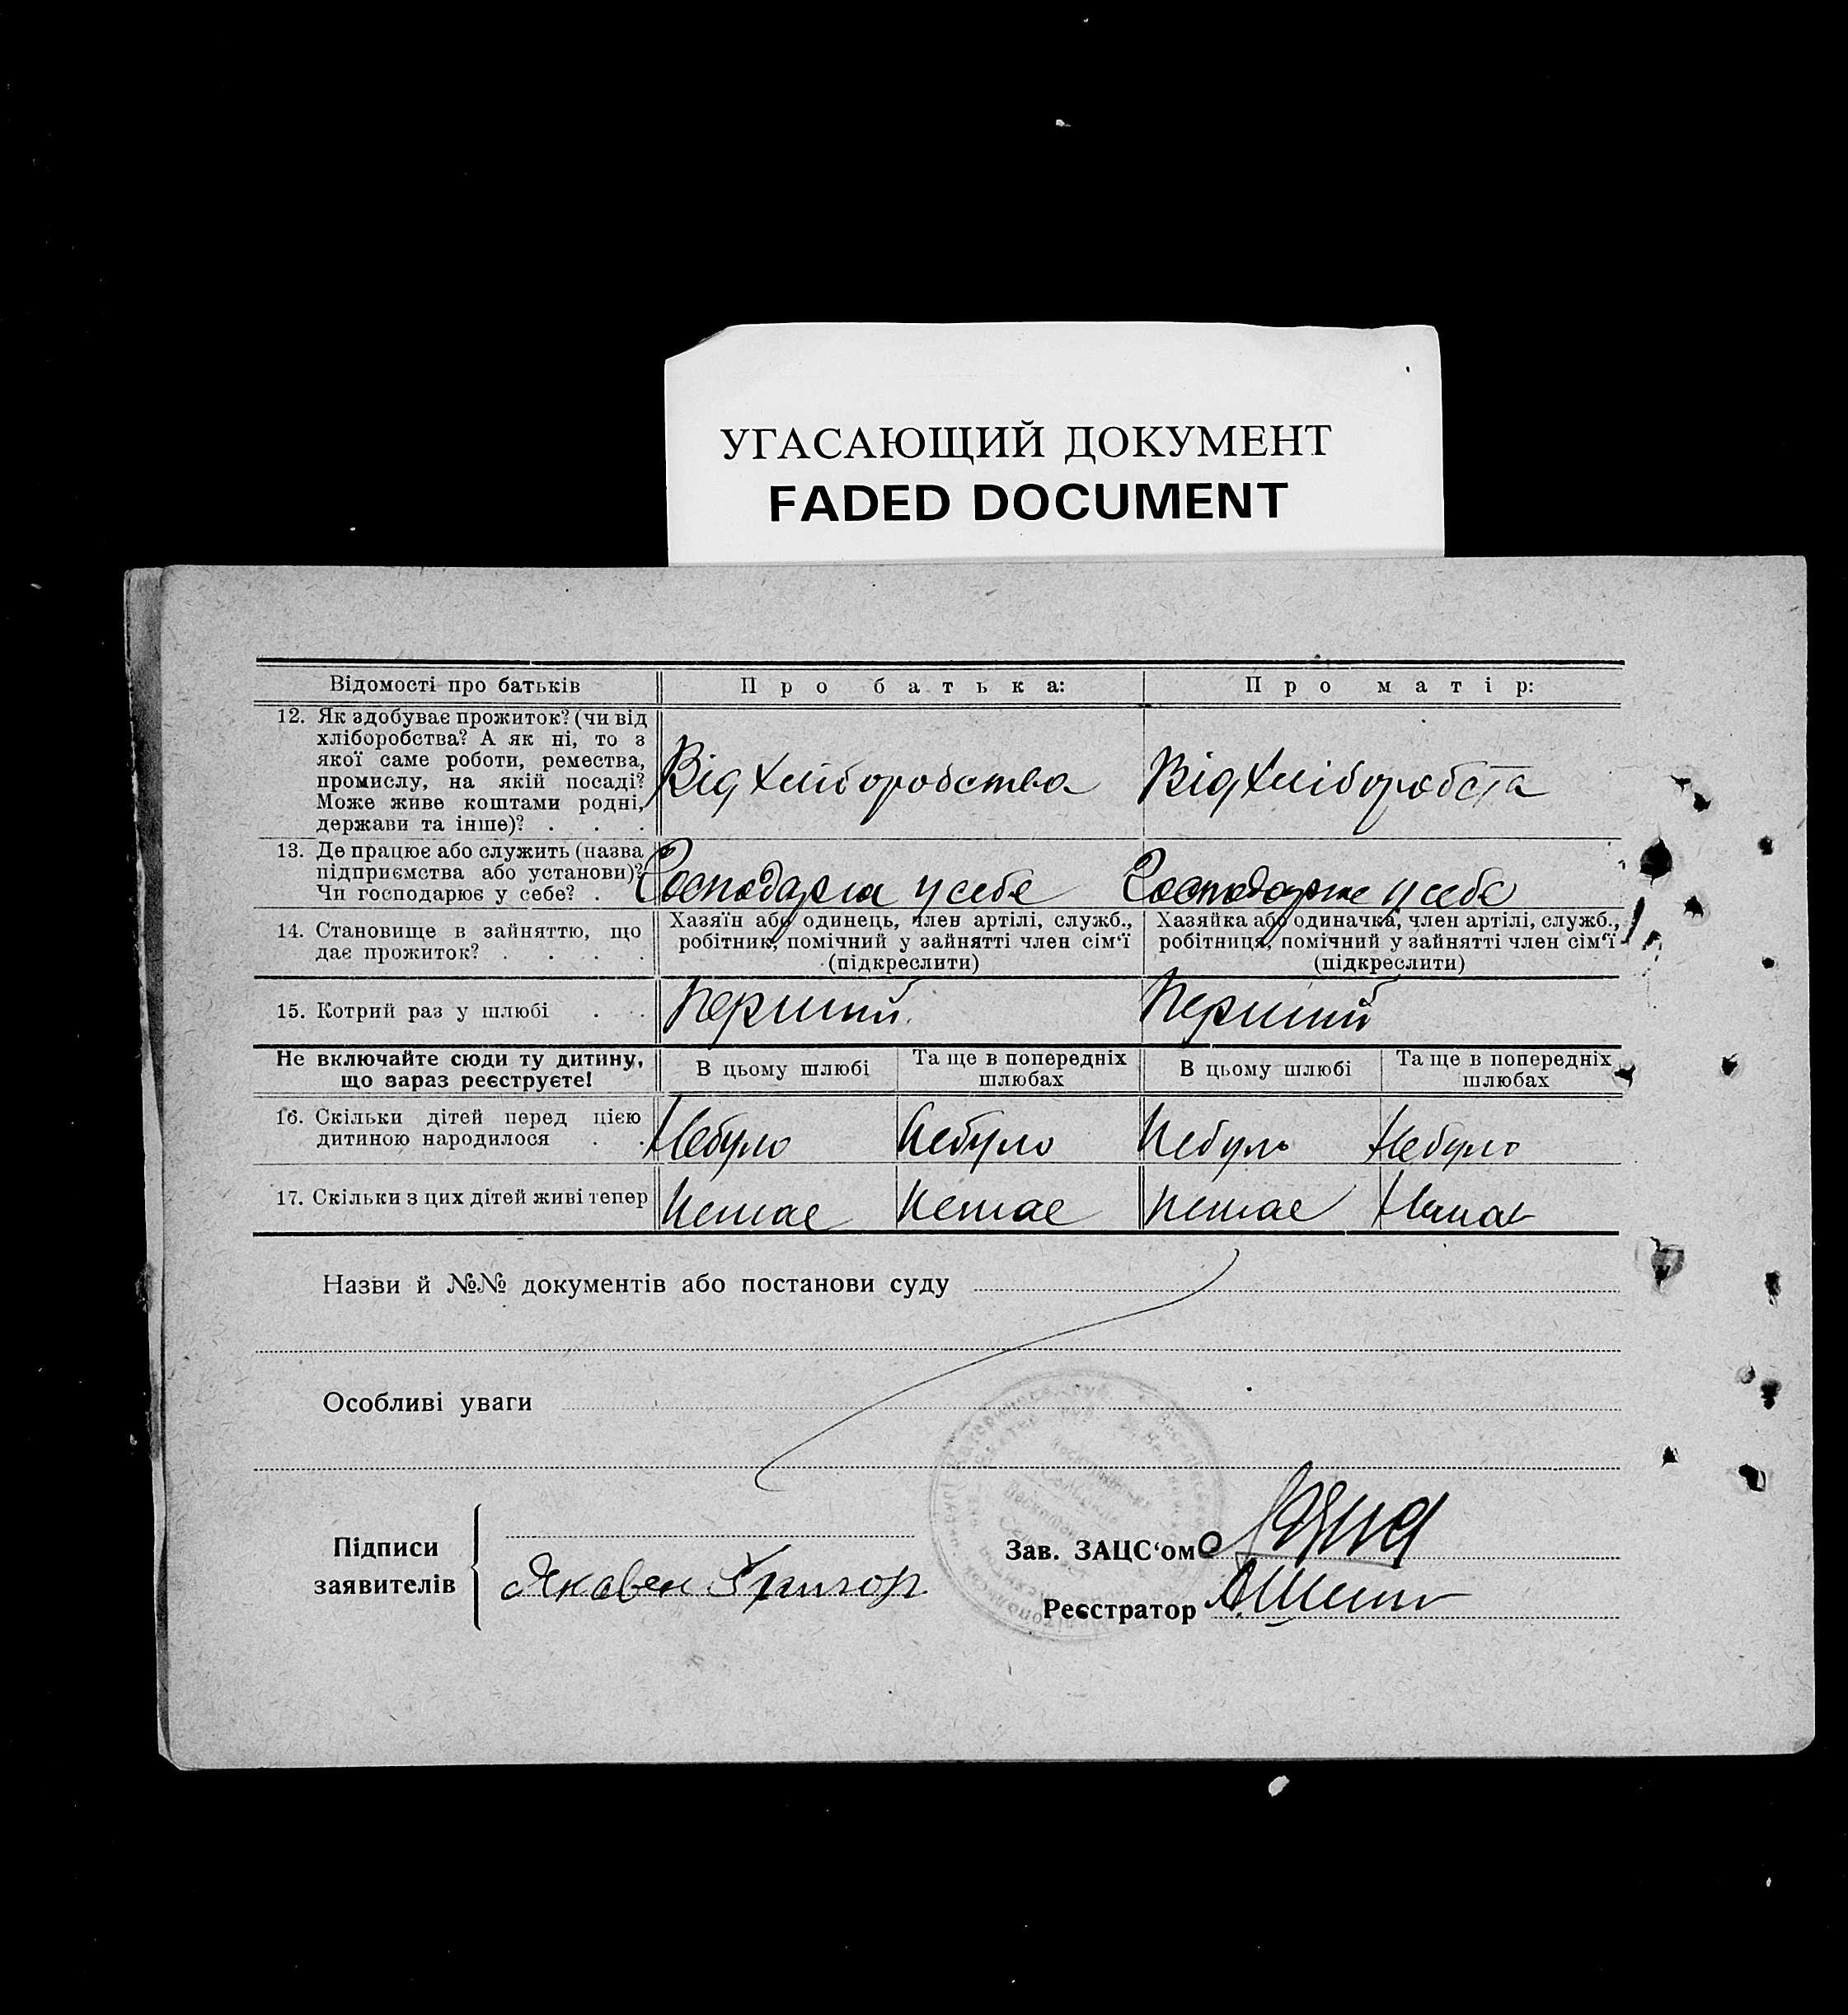 УГАСАЮЩИЙ ДОКУМЕНТ
FADED DOCUMENT
Відомості про батьків
Про батька:
Про матір:
12. Як здобуває прожиток? (чи від
хліборобства? А як ні, то з
якої саме роботи, ремества,
промислу, на якій посаді?
Може живе коштами родні,
держави та інше)? . . .
Від хліборобства
Від хліборобста
13. Де працює або служить (назва
підприємства або установи)?
Чи господарює у себе? .
Господарює у себе
Господарює у себе
14. Становище в зайняттю, що
дає прожиток? . . . .
Хазяїн або одинець, член артілі, служб.,
робітник, помічний у зайнятті член сім‘ї
(підкреслити)
Хазяйка або одиначка, член артілі, служб.,
робітниця, помічний у зайнятті член сім‘ї
(підкреслити)
15. Котрий раз у шлюбі . .
Перший
Перший
Не включайте сюди ту дитину,
що зараз реєструєте!
В цьому шлюбі
Та ще в попередніх
шлюбах
В цьому шлюбі
Та ще в попередніх
шлюбах
16. Скільки дітей перед цією
дитиною народилося . .
Небуло
Небуло
Небуло
Небуло
17. Скільки з цих дітей живі тепер
Немає
Немає
Немає
Немає
Назви й №№ документів або постанови суду
Особливі уваги
Підписи
заявителів
Яковен Григор
Зав. ЗАЦС‘ом
Реєстратор